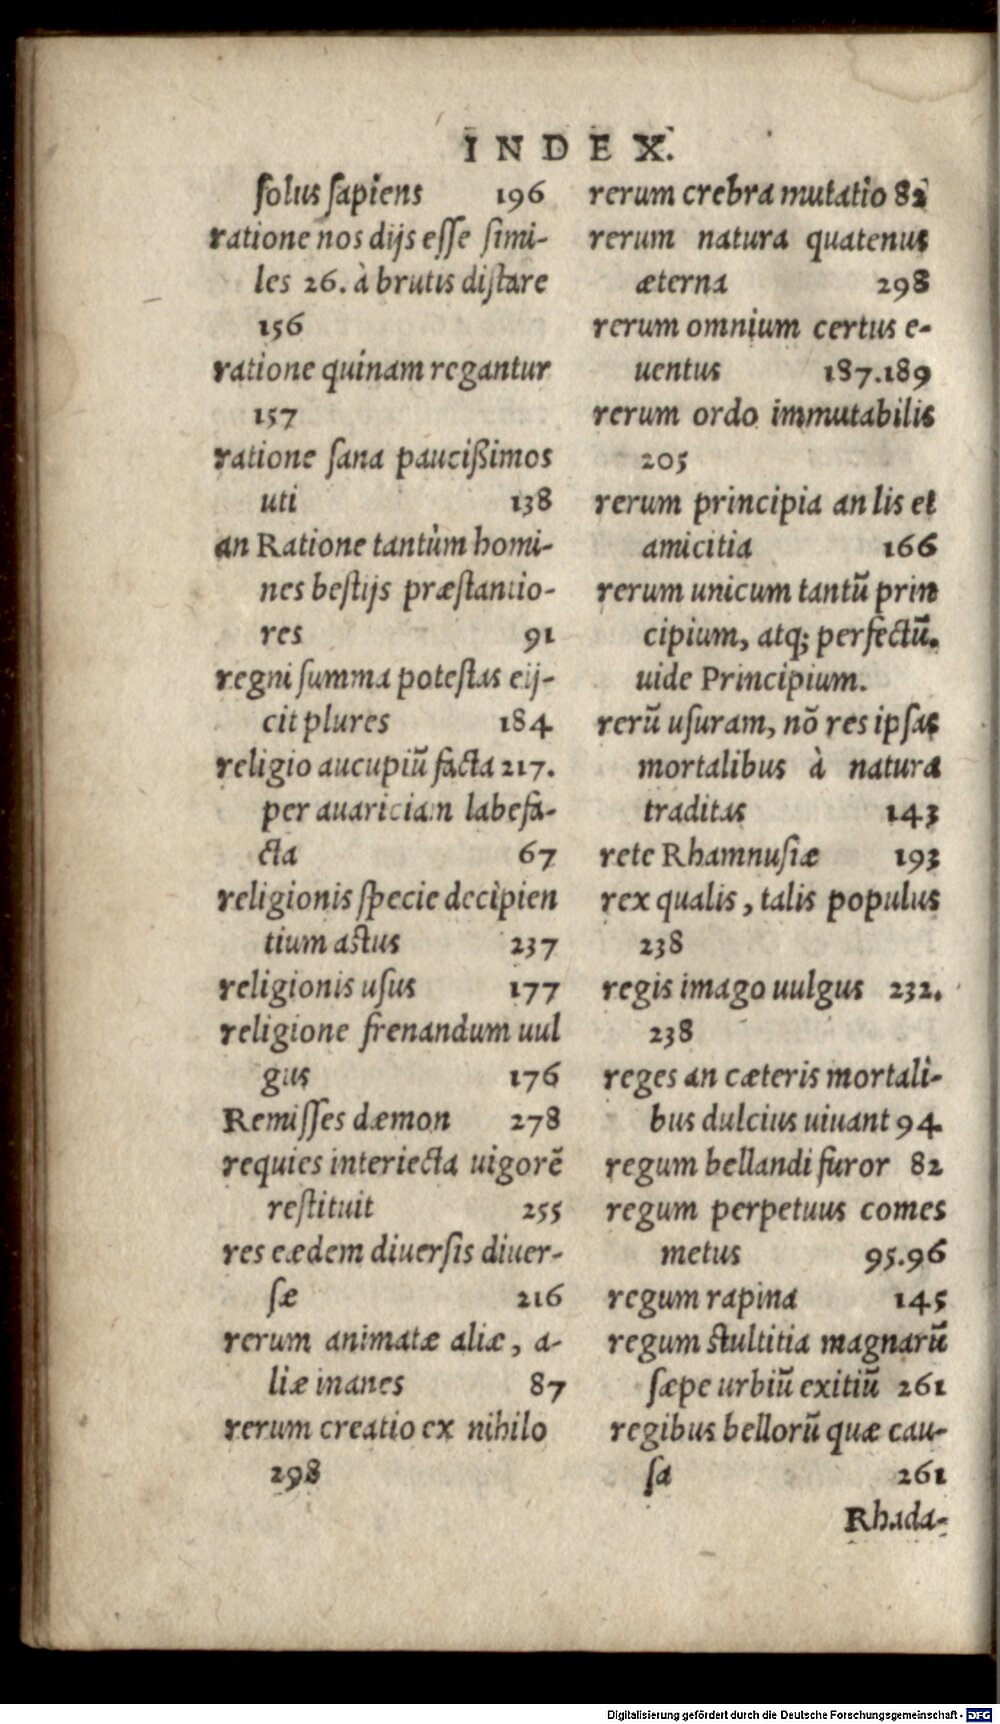 INDEX.
ſolus ſapiens 196
ratione nos dijs eſſe ſimi-
les 26. à brutis diſtare
156
ratione quinam regantur
157
ratione ſana pauciſsimos
uti 138
an Ratione tantùm homi-
nes beſtijs præſtantio-
res 91
regni ſumma poteſtas eij-
cit plures 184
religio aucupiũ facta 217.
per auariciam labefa-
cta 67
religionis ſpecie decipien
tium actus 237
religionis uſus 177
religione frenandum uul
gus 176
Remiſſes dæmon 278
requies interiecta uigorẽ
reſtituit 255
res eædem diuerſis diuer-
ſæ 216
rerum animatæ aliæ, a-
liæ inanes 87
rerum creatio ex nihilo
298
rerum crebra mutatio 82
rerum natura quatenus
æterna 298
rerum omnium certus e-
uentus 187.189
rerum ordo immutabilis
205
rerum principia an lis et
amicitia 166
rerum unicum tantũ prin
cipium, atq; perfectũ.
uide Principium.
rerũ uſuram, nõ res ipſas
mortalibus à natura
traditas 143
rete Rhamnuſiæ 193
rex qualis, talis populus
238
regis imago uulgus 232.
238
reges an cæteris mortali-
bus dulcius uiuant 94
regum bellandi furor 82
regum perpetuus comes
metus 95.96
regum rapina 145
regum ſtultitia magnarũ
ſæpe urbiũ exitiũ 261
regibus bellorũ quæ cau-
ſa 261
Rhada-
Digitalisierung gefördert durch die Deutsche Forschungsgemeinschaft - DFG